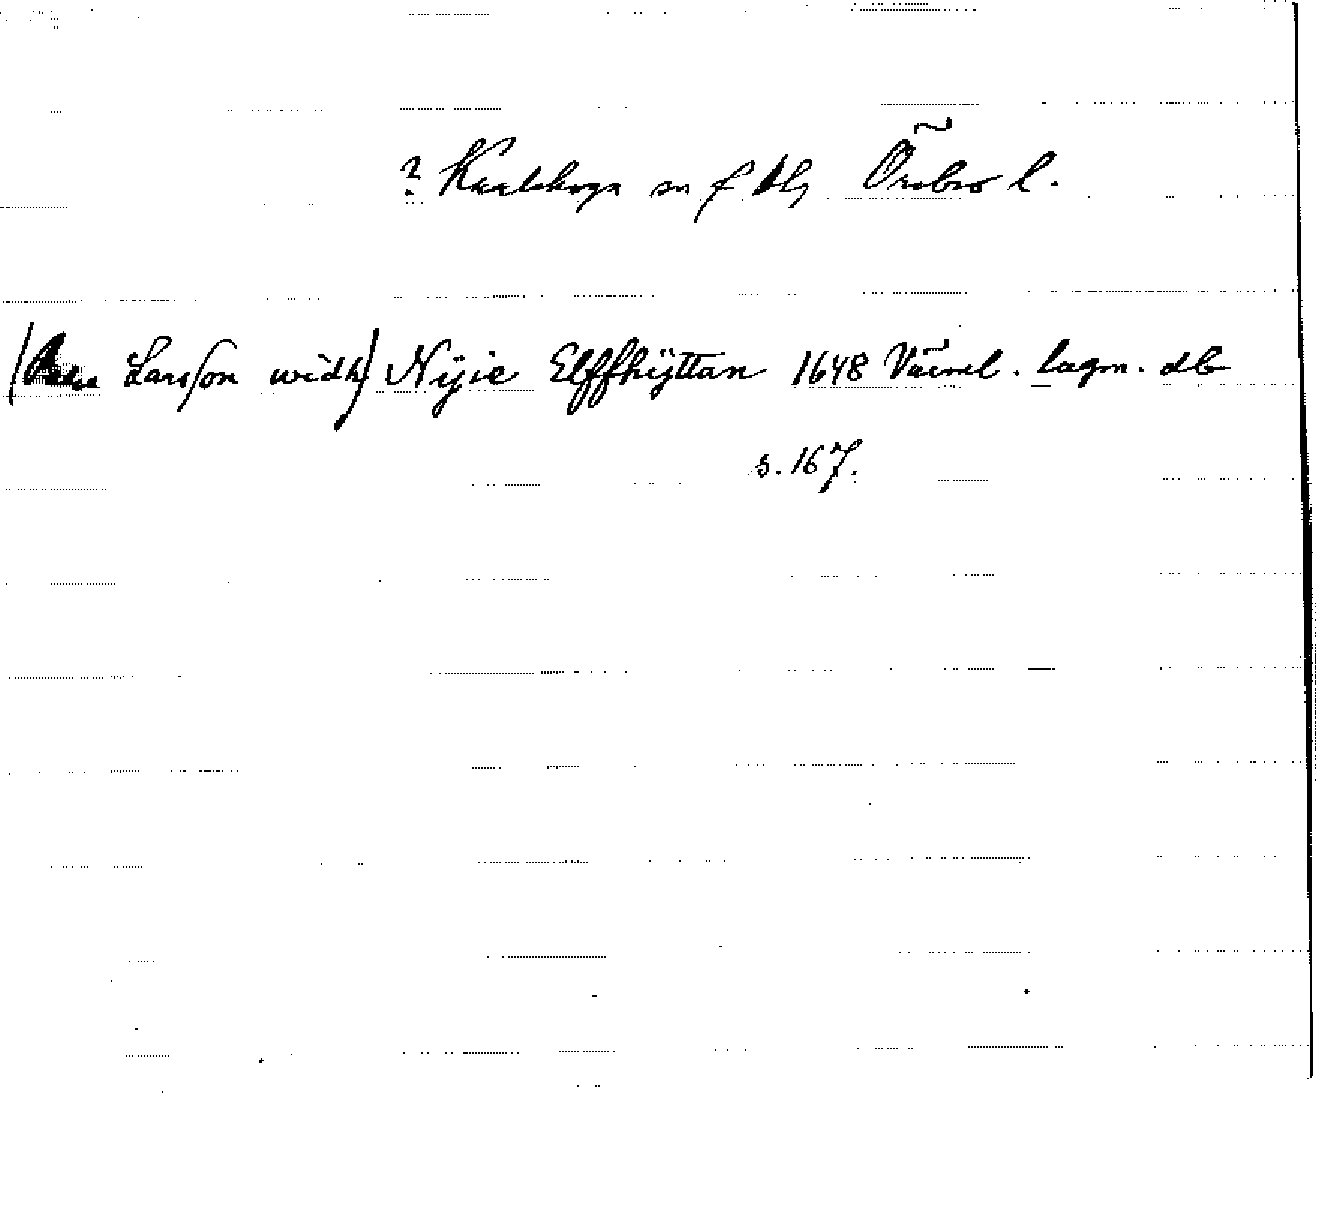 ? Karlskoga sn f bg Örebro l.
Larsson widh) Nyie Elffhyttan 1648 Värml. lagm. db
s. 167.